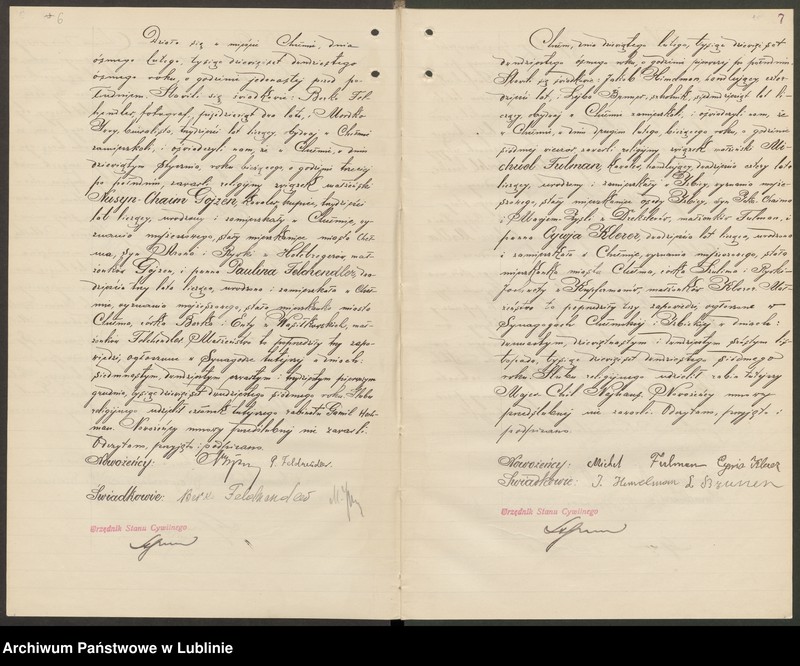 6
Działo się w mieście Chełmie, dnia
ósmego lutego, tysiąc dziewięćset dwudziestego
ósmego roku, o godzinie jedenastej przed po-
łudniem. Stawili się świadkowie: Berko Fel-
hendler, fotograf, pięćdziesiąt dwa lata, i Moszko
lat liczący, obydwaj w Chełmie
zamieszkali, i oświadczyli nam, że w Chełmie, w dniu
dziewiątym stycznia, roku bieżącego, o godzinie trzeciej
po południu, zawarli religijny związek małżeński
Nusyn-Chaim Gojzen, kawaler, kupiec, trzydzieści
lat liczący, urodzony i zamieszkały w Chełmie, wy-
znania mojżeszowego, stały mieszkaniec miasta Cheł-
ma, syn Arona i Rywki z Holcbregerów, mał-
żonków Gojzen, i panna Paulina Felchendler, dwa-
dzieścia trzy lata licząca, urodzona i zamieszkała w Cheł-
mie, wyznania mojżeszowego, stała mieszkanka miasta
Chełma, córka Berka i małż-
żonków Felhendler. Małżeństwo to poprzedziły trzy zapo-
wiedzi, ogłoszone w Synagodze tutejszej w dniach:
siedemnastym, dwudziestym czwartym i trzydziestym pierwszym
grudnia, tysiąc dziewięćset dwudziestego siódmego roku. Ślubu
religijnego udzielił członek tutejszego rabinatu
Nowożeńcy umowy przedślubnej nie zawarli.
Odczytano, przyjęto i podpisano.
Nowożeńcy: P. Feldhendler.
Świadkowie:
Urzędnik Stanu Cywilnego
7
Chełm, dnia dziewiątego lutego, tysiąc dziewięćset
dwudziestego ósmego roku, o godzinie pierwszej po południu.
Stawili się świadkowie: Jakób Himelman, handlujący, czter-
dzieści lat, i Lejba szkolnik, siedemdziesiąt lat li-
czący, obydwaj w Chełmie zamieszkali, i oświadczyli nam, że
w Chełmie, w dniu drugim lutego, bieżącego roku, o godzinie
siódmej wieczór, zawarli religijny związek małżeński Mi-
chuel Fulman, kawaler, handlujący, dwadzieścia cztery lata
liczący, urodzony i zamieszkały w Izbicy, wyznania mojże-
szowego, stały mieszkaniec osady Izbicy, syn
małżonków Fulman, i
panna Cywja Klerer, dwadzieścia lat licząca, urodzona
i zamieszkała w Chełmie, wyznania mojżeszowego, stała
mieszkanka miasta Chełma, córka Szulima i Ryfki-
małżonków Klerer. Mał-
żeństwo to poprzedziły trzy zapowiedzi, ogłoszone w
Synagogach Chełmskiej i Izbickiej, w dniach:
dwunastym, dziewiętnastym i dwudziestym szóstym li-
stopada, tysiąc dziewięćset dwudziestego siódmego
roku. Ślubu religijnego udzielił rabin tutejszy
Majer Chil Nejhaus. Nowożeńcy umowy
przedślubnej nie zawarli. Odczytano, przyjęto i
podpisano.
Nowożeńcy: Michel Fulman Cywia Klerer
Świadkowie: J. Himelman
Urzędnik Stanu Cywilnego
Archiwum Państwowe w Lublinie